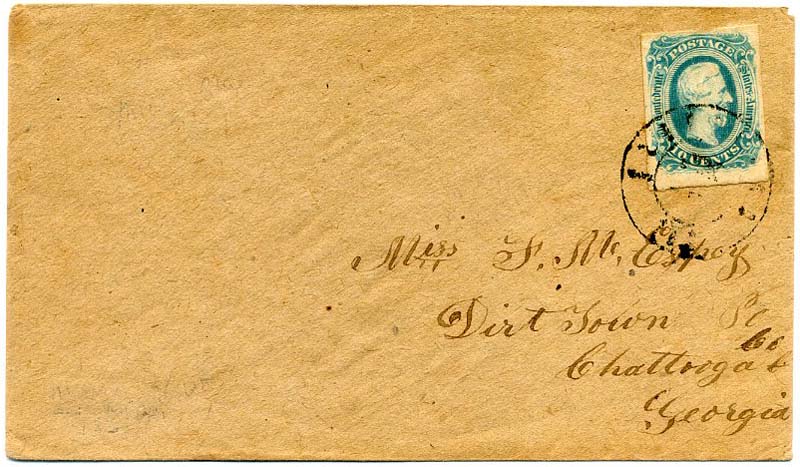 POSTAGE
Confederate States America
10 CENTS
Miss F. Mc Espey
Dirt Town Po
Chattooga Co
Georgia